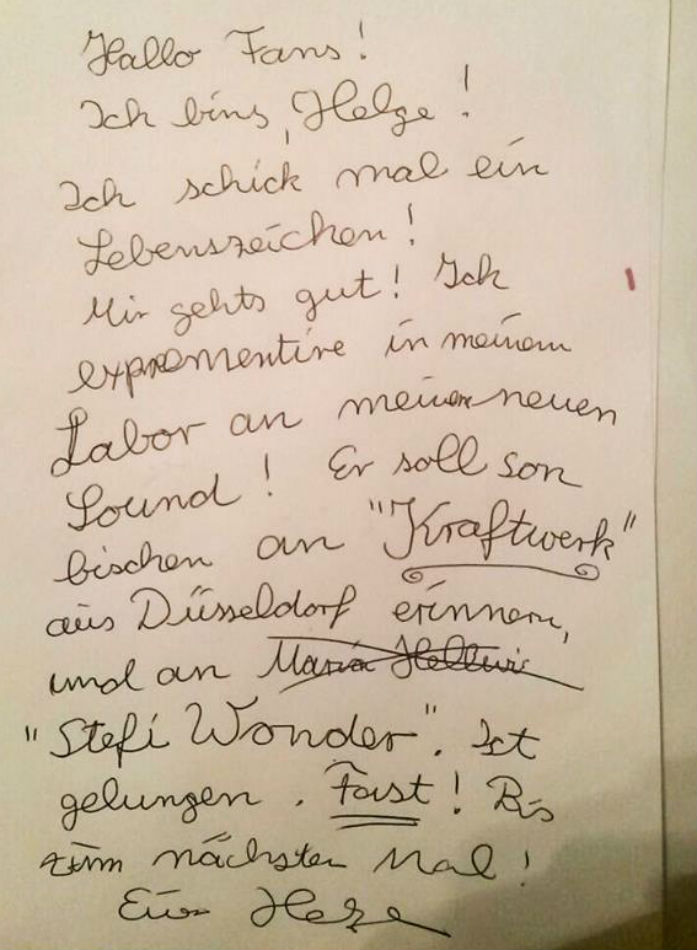 Hallo Fans!
Ich bins, Helge!
Ich schick mal ein
Lebenszeichen!
Mir gehts gut! Ich
exprementire in meinem
Labor an meinem neuen
Sound! Er soll son
bischen an "Kraftwerk"
aus Düsseldorf erinnern,
und an Maria Hellwi
"Stefi Wonder". Ist
gelungen. Fast! Bis
zum nächsten Mal!
Euer Helge